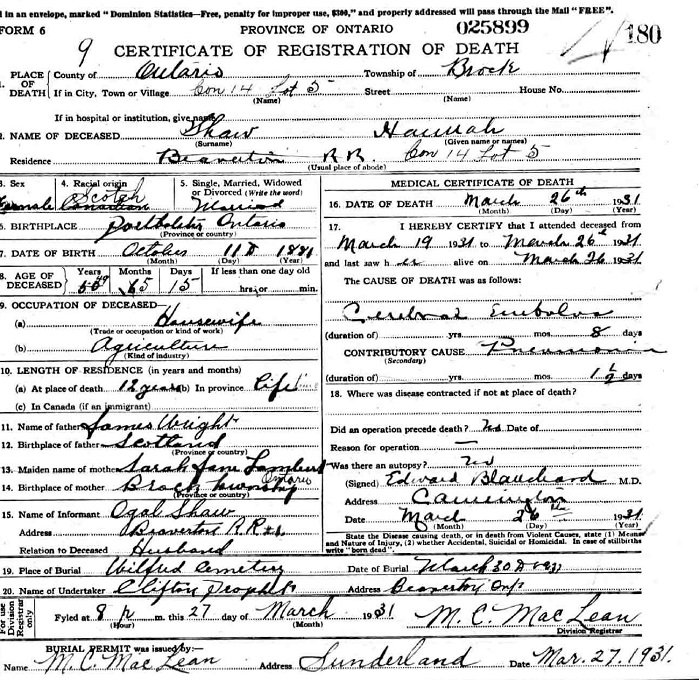 d in an envelope, marked "Dominion Statistics—Free, penalty for improper use, $300," and properly addressed will pass through the Mail "FREE".
FORM 6 PROVINCE OF ONTARIO 025899
9 CERTIFICATE OF REGISTRATION OF DEATH 180
1. PLACE OF DEATH County of Ontario Township of Brock
If in City, Town or Village Con 14 Lot 5 Street House No.
(Name) (Name)
If in hospital or institution, give name
2. NAME OF DECEASED Shaw Hannah
(Surname) (Given name or names)
Residence Beaverton R.R. Con 14 Lot 5
(Usual place of abode)
3. Sex 4. Racial origin 5. Single, Married, Widowed or Divorced (Write the word)
Female Scotch Canadian Married
6. BIRTHPLACE Ontario
(Province or country)
7. DATE OF BIRTH October 11 1881
(Month) (Day) (Year)
8. AGE OF DECEASED Years Months Days If less than one day old
49 5 15 hrs. or min.
9. OCCUPATION OF DECEASED—
(a) Housewife
(Trade or occupation or kind of work)
(b) Agriculture
(Kind of industry)
10. LENGTH OF RESIDENCE (in years and months)
(a) At place of death 12 years (b) In province life
(c) In Canada (if an immigrant)
11. Name of father James Wright
12. Birthplace of father Scotland
(Province or country)
13. Maiden name of mother Sarah Jane Lambert
14. Birthplace of mother Brock township Ontario
(Province or country)
15. Name of Informant Ogal Shaw
Address Beaverton R R #1
Relation to Deceased Husband
MEDICAL CERTIFICATE OF DEATH
16. DATE OF DEATH March 26th 1931
(Month) (Day) (Year)
17. I HEREBY CERTIFY that I attended deceased from
March 19 1931 to March 26th 1931
and last saw her alive on March 26 1931
The CAUSE OF DEATH was as follows:
Cerebral Embolus
(duration of) yrs. mos. 8 days
CONTRIBUTORY CAUSE Pneumonia
(Secondary)
(duration of) yrs. mos. 1½ days
18. Where was disease contracted if not at place of death?
Did an operation precede death? No Date of
Reason for operation —
Was there an autopsy? No
(Signed) Edward Blanchard M.D.
Address Cannington
Date March 26th 1931
(Month) (Day) (Year)
State the Disease causing death, or in death from Violent Causes, state (1) Means
and Nature of Injury, (2) whether Accidental, Suicidal or Homicidal. In case of stillbirths
write "born dead".
19. Place of Burial Wilfred Cemetery Date of Burial March 30 1931
20. Name of Undertaker Clifton Prophet Address Beaverton Ont
For use Division Registrar only
Fyled at 8 p m. this 27 day of March 1931 M. C. MacLean
(Hour) (Month) Division Registrar
BURIAL PERMIT was issued by:—
Name M. C. MacLean Address Sunderland Date Mar. 27. 1931.